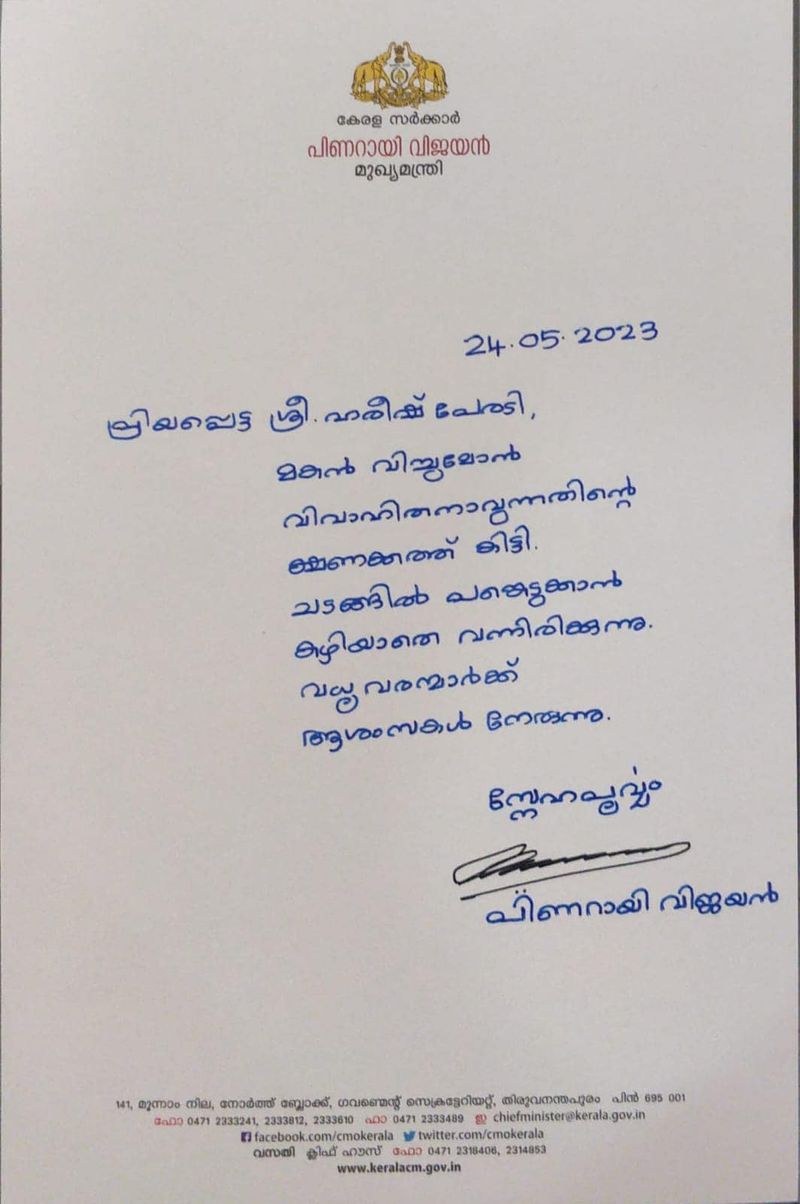 കേരള സർക്കാർ
പിണറായി വിജയൻ
മുഖ്യമന്ത്രി
24.05.2023
പ്രിയപ്പെട്ട ശ്രീ. ഹരീഷ് പേരടി,
മകൻ വിച്ചുമോൻ
വിവാഹിതനാവുന്നതിന്റെ
ക്ഷണക്കത്ത് കിട്ടി.
ചടങ്ങിൽ പങ്കെടുക്കാൻ
കഴിയാതെ വന്നിരിക്കുന്നു.
വധൂവരന്മാർക്ക്
ആശംസകൾ നേരുന്നു.
സ്നേഹപൂർവ്വം
പിണറായി വിജയൻ
141, മൂന്നാം നില, നോർത്ത് ബ്ലോക്ക്, ഗവൺമെന്റ് സെക്രട്ടേറിയറ്റ്, തിരുവനന്തപുരം പിൻ 695 001
ഫോ 0471 2333241, 2333812, 2333610 ഫാ 0471 2333489 ഇ chiefminister@kerala.gov.in
facebook.com/cmokerala twitter.com/cmokerala
വസതി ക്ലിഫ് ഹൗസ് ഫോ 0471 2318406, 2314853
www.keralacm.gov.in